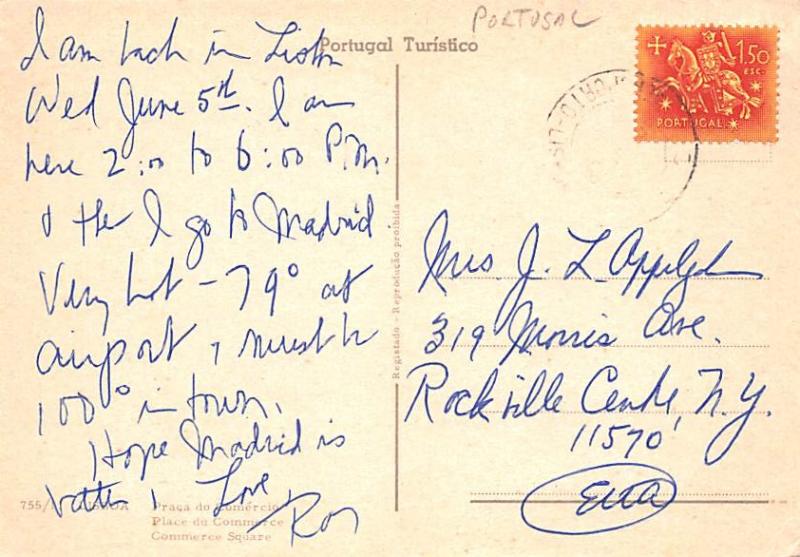 PORTUGAL
Portugal Turístico
1.50
ESC.
PORTUGAL
I am back in Lisbn
Wed June 5th. I am
here 2:00 to 6:00 P.M.
& the I go to Madrid
Very hot - 79° at
airport, must b
100° in town.
Hope Madrid is
better, Love,
Ron
Registado - Reprodução proibida
Mrs. J. L.
319 Morris Ave.
Rockville Centre N.Y.
11570
EUA
755/ LISBOA Praça do Comércio
Place du Commerce
Commerce Square